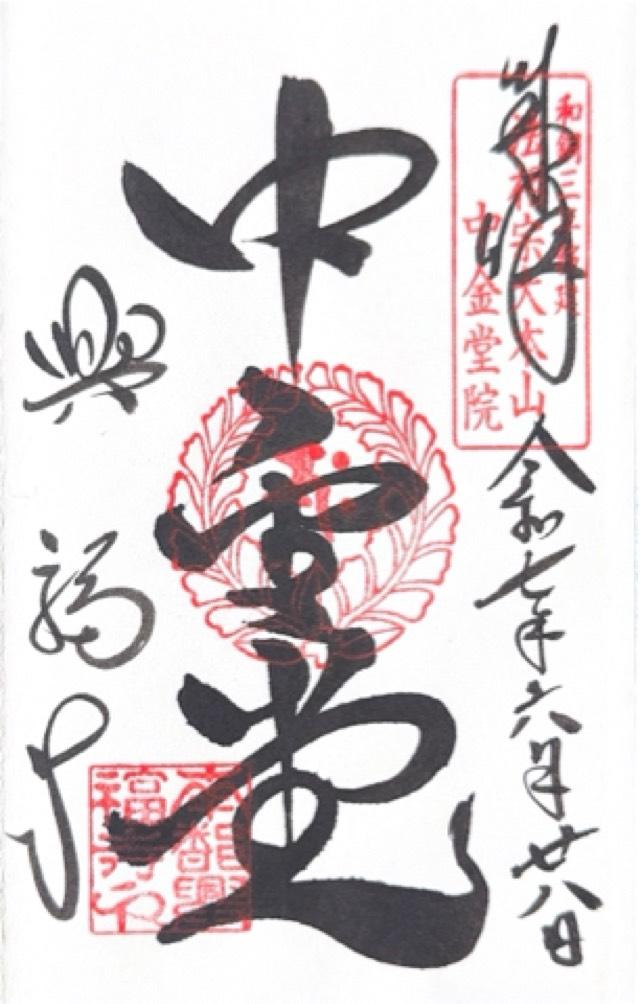 奉拝
和銅三年創建
法相宗大本山
中金堂院
令和七年六月廿八日
中金堂
興福寺